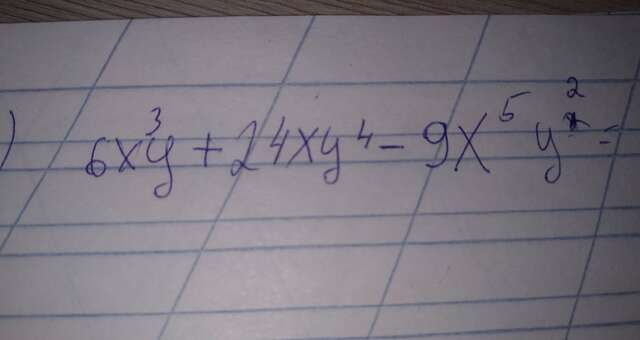 ) 6x³y + 24xy⁴ - 9x⁵y² =